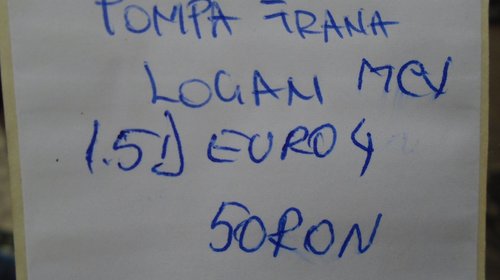 POMPA FRANA
LOGAN MCV
1.5D EURO 4
50RON